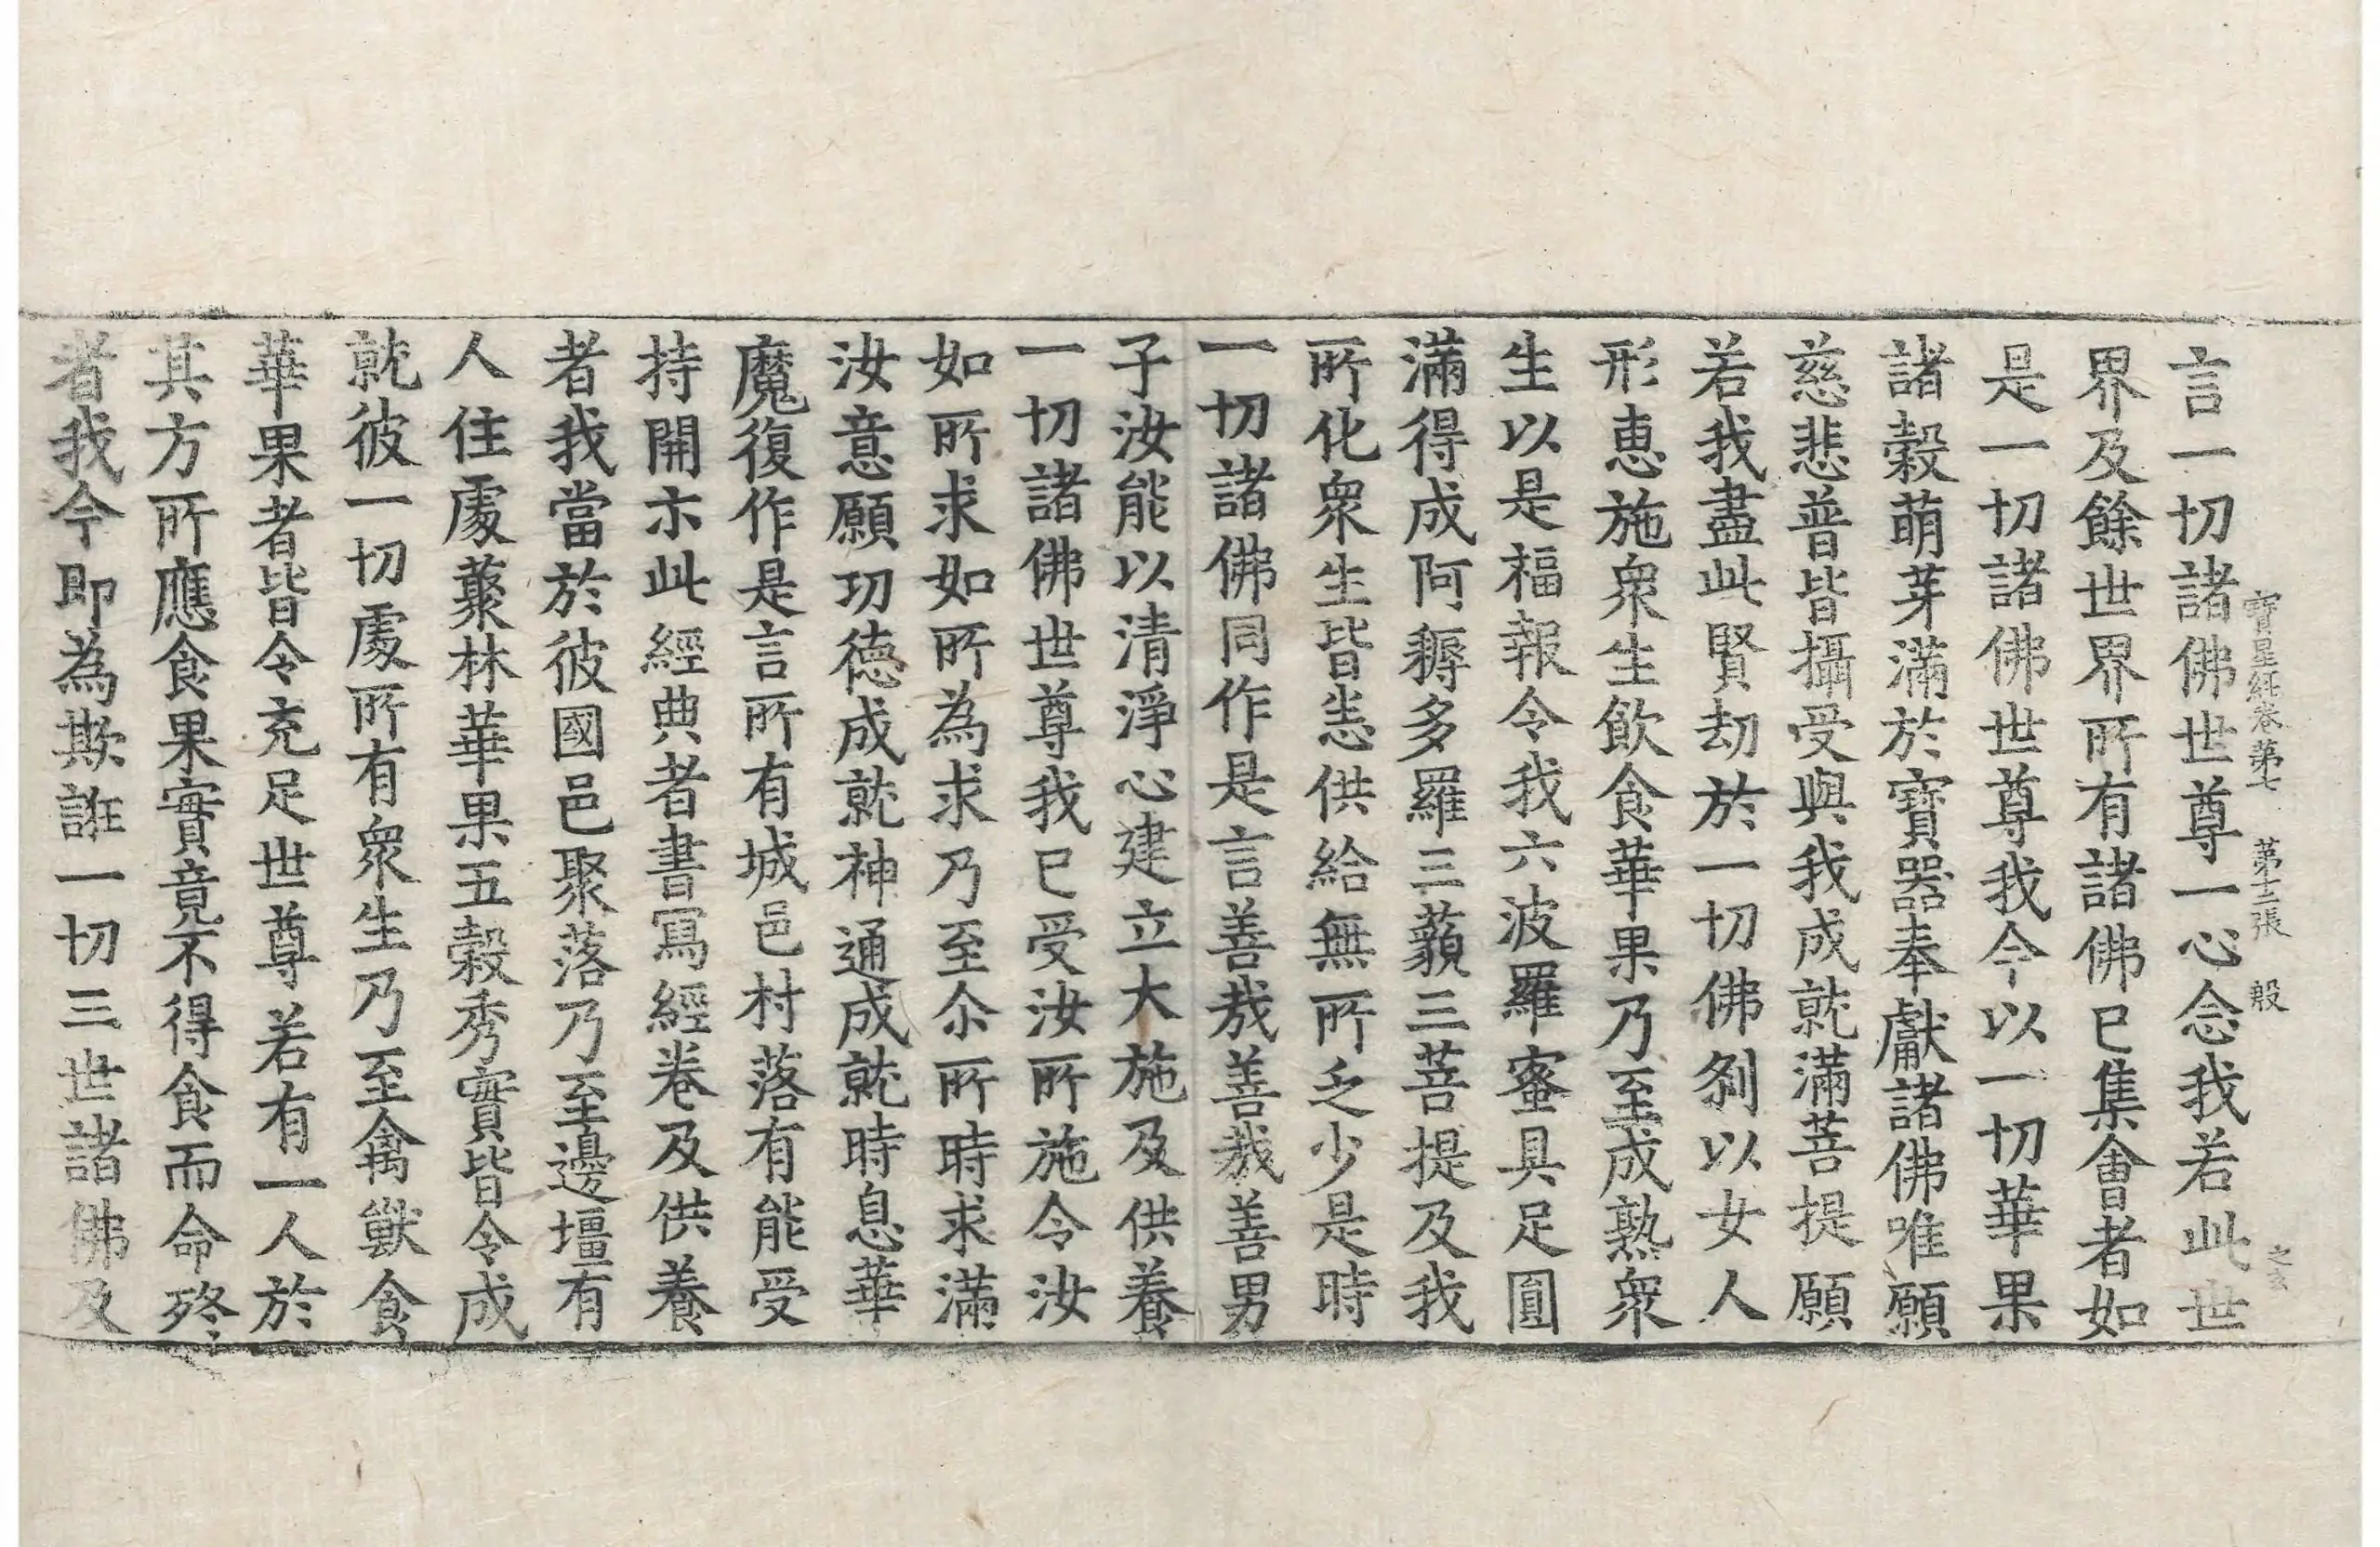 言一切諸佛世尊一心念我若此世
寶星経卷第七 第十三張 般 之玄
界及餘世界所有諸佛已集會者如
是一切諸佛世尊我今以一切華果
諸穀萌芽滿於寶器奉獻諸佛唯願
慈悲普皆攝受與我成就滿菩提願
若我盡此賢劫於一切佛剎以女人
形恵施衆生飲食華果乃至成熟衆
生以是福報令我六波羅蜜具足圓
滿得成阿耨多羅三藐三菩提及我
所化衆生皆悉供給無所乏少是時
一切諸佛同作是言善哉善哉善男
子汝能以清淨心建立大施及供養
一切諸佛世尊我已受汝所施令汝
如所求如所為求乃至尒所時求滿
汝意願功德成就神通成就時息華
魔復作是言所有城邑村落有能受
持開示此經典者書寫經卷及供養
者我當於彼國邑聚落乃至邊壃有
人住處藂林華果五穀秀實皆令成
就彼一切處所有衆生乃至禽獸食
華果者皆令充足世尊若有一人於
其方所應食果實竟不得食而命終
者我今即為欺誑一切三世諸佛及